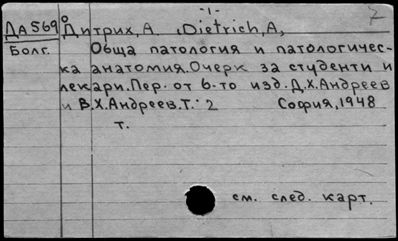 -1-
7
ДА569° Дитрих,А. ,Dietrich,A,
Болг. Обща патология и патологичес-
ка анатомия.Очерк за студенти и
лекари.Пер. от 6-то изд.Д.Х.Андреев
и В.Х.Андреев.Т.:2 София,1948
т.
см. след. карт.